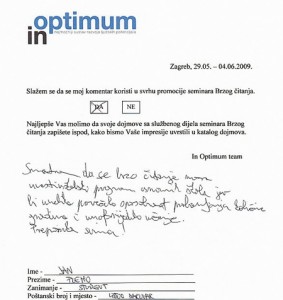 in optimum
Zagreb, 29.05. – 04.06.2009.
Slažem se da se moj komentar koristi u svrhu promocije seminara Brzog čitanja.
DA NE
Najljepše Vas molimo da svoje dojmove sa službenog dijela seminara Brzog
čitanja zapišete ispod, kako bismo Vaše impresije uvrstili u katalog dojmova.
In Optimum team
Smatram da se brzo čitanje mora
program srednjih škola jer
bi uvelike povećalo sposobnost
gradiva i unaprijedilo učenje.
Preporuka svima!
Ime – JAN
Prezime –
Zanimanje – STUDENT
Poštanski broj i mjesto – DARUVAR